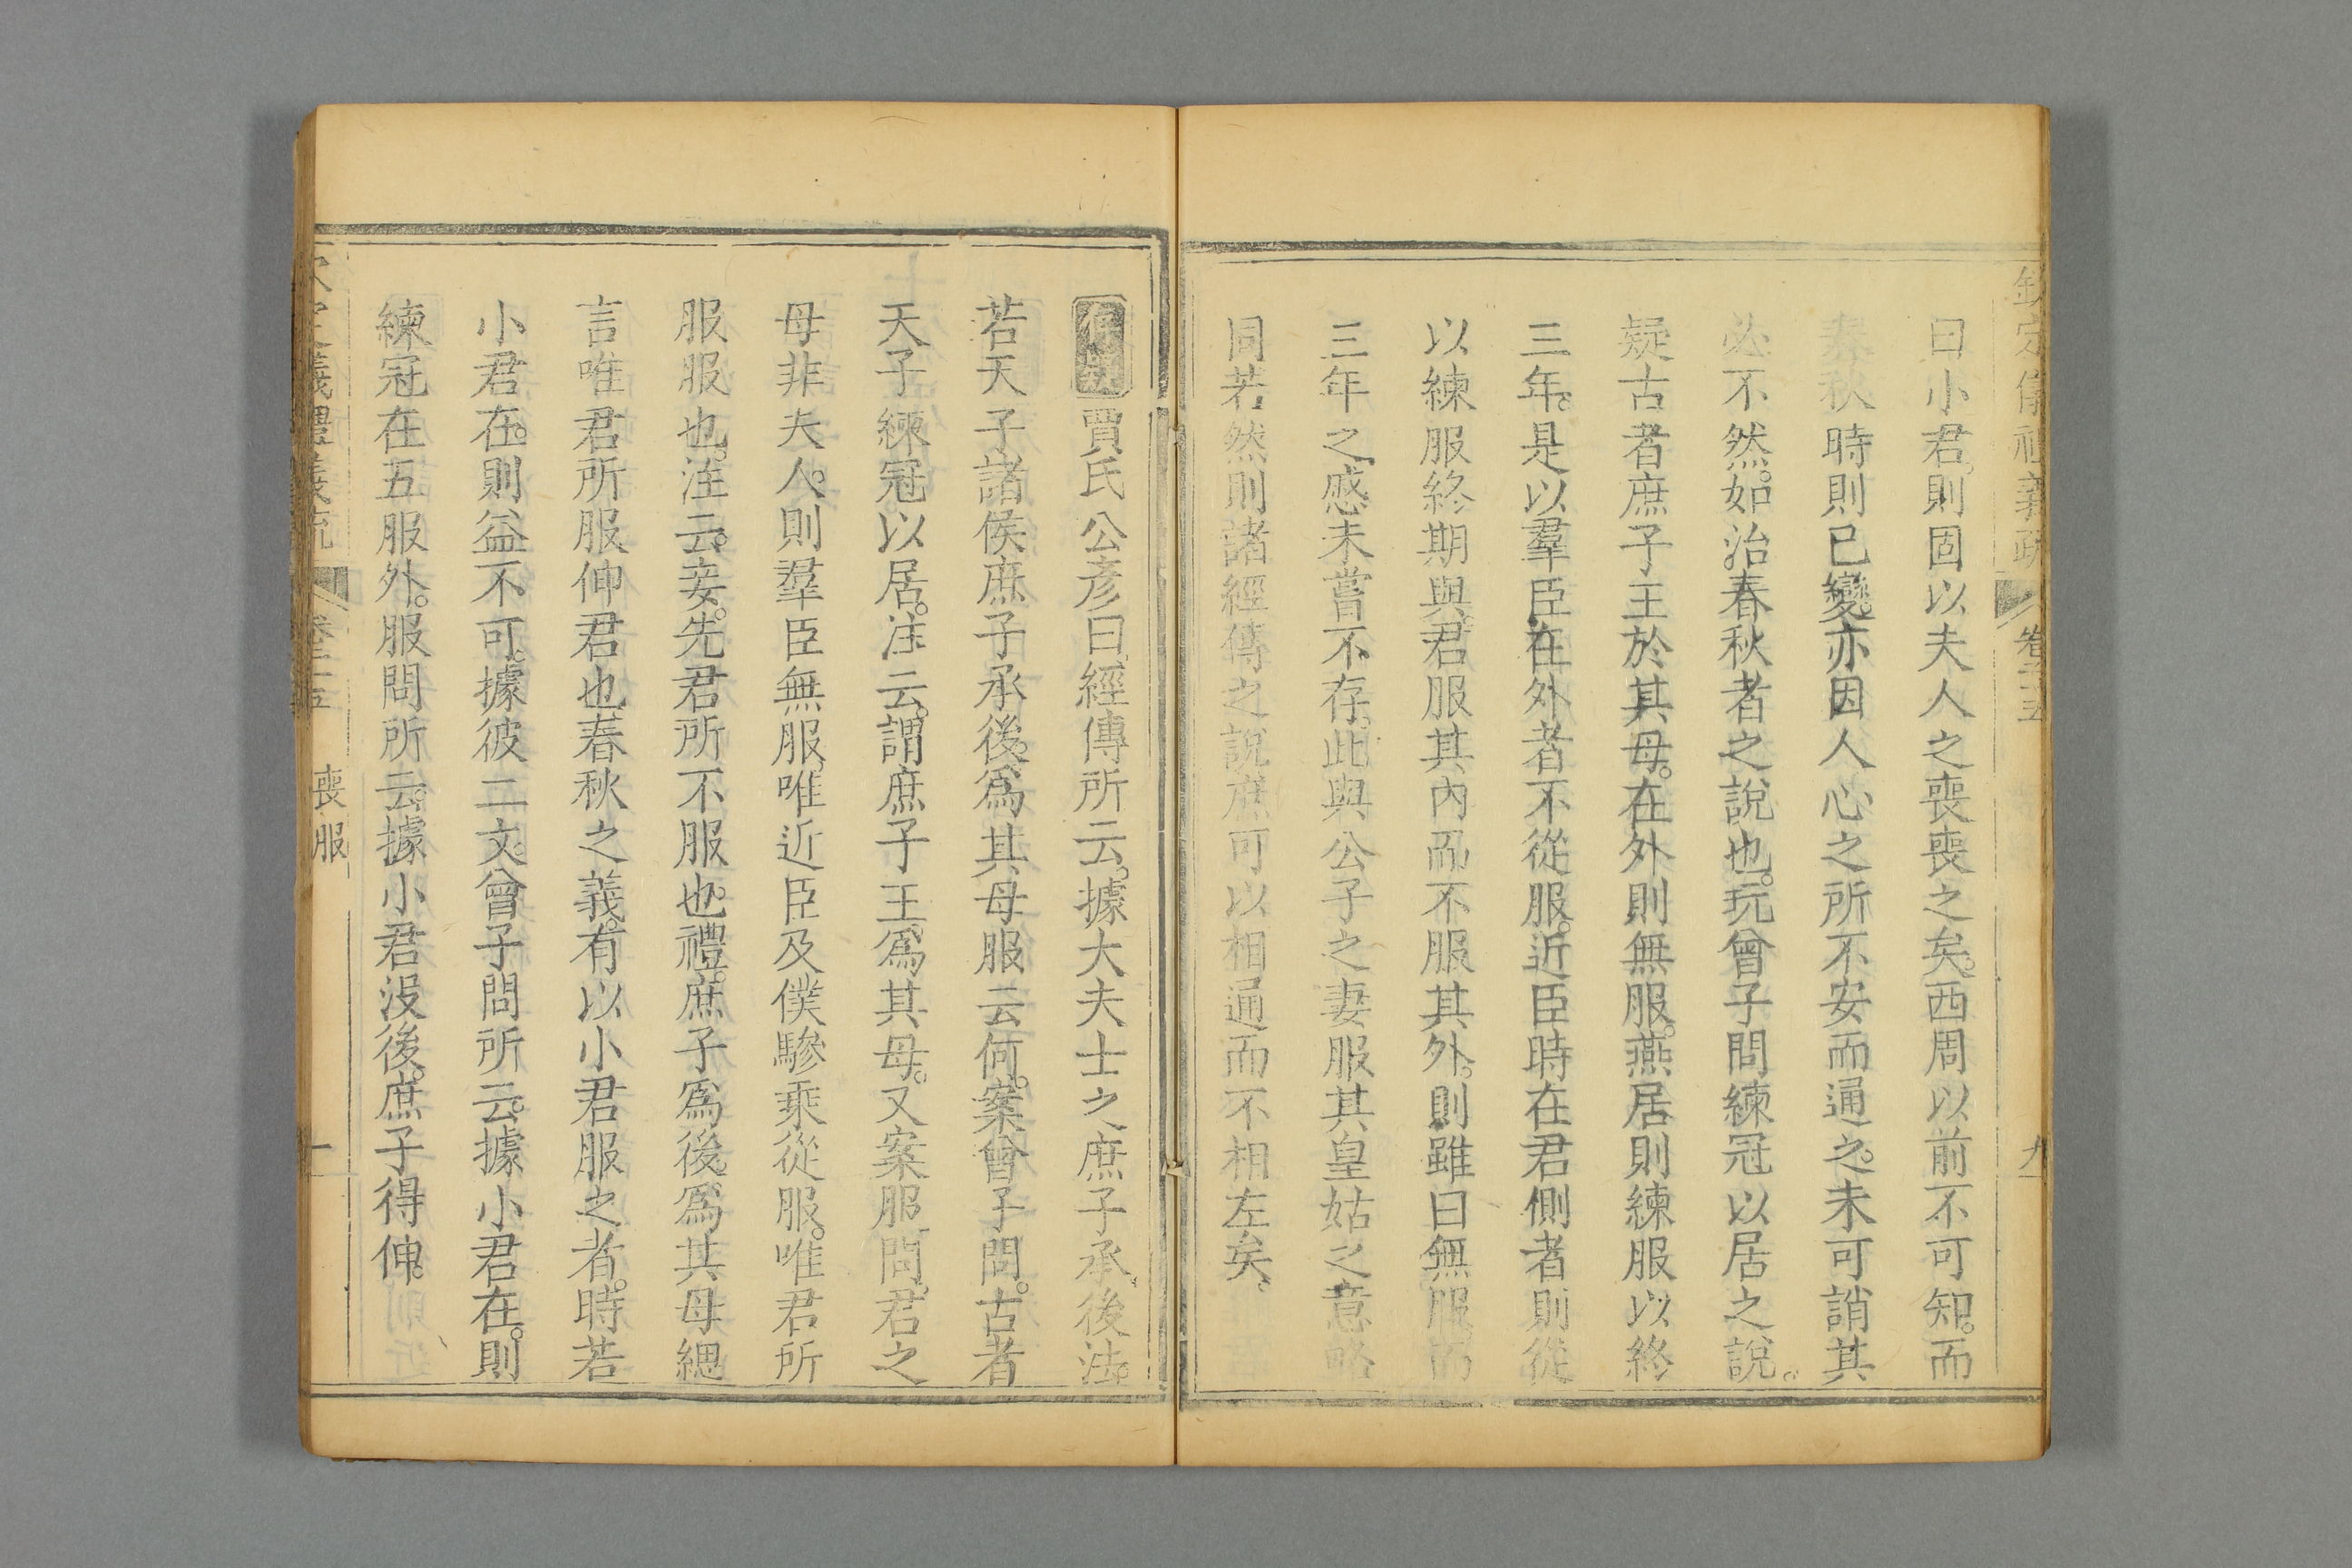 欽定儀禮義疏 卷二十五 九
曰小君。則固以夫人之喪喪之矣。西周以前不可知。而
春秋時則已變。亦因人心之所不安而通之。未可誚其
必不然。如治春秋者之說也。玩曾子問練冠以居之說。
疑古者庶子王於其母。在外則無服。燕居則練服以終
三年。是以羣臣在外者不從服。近臣時在君側者則從
以練服終期與。君服其內而不服其外。則雖曰無服而
三年之慼未嘗不存。此與公子之妻服其皇姑之意略
同若然則諸經傳之說庶可以相通而不相左矣。
存疑賈氏公彥曰經傳所云。據大夫士之庶子承後法。
若天子諸侯庶子承後。爲其母服云何。案曾子問。古者
天子練冠以居。注云。謂庶子王。爲其母。又案服問。君之
母非夫人。則羣臣無服。唯近臣及僕驂乘從服。唯君所
服服也。注云。妾。先君所不服也。禮。庶子爲後。爲其母緦
言唯君所服伸君也。春秋之義。有以小君服之者。時若
小君在。則益不可。據彼二文。曾子問所云。據小君在。則
練冠在五服外。服問所云。據小君沒後。庶子得伸。
義禮義疏 喪服